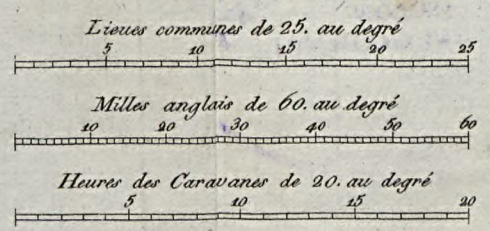 Lieues communes de 25. au degré
5 10 15 20 25
Milles anglais de 60. au degré
10 20 30 40 50 60
Heures des Caravanes de 20. au degré
5 10 15 20